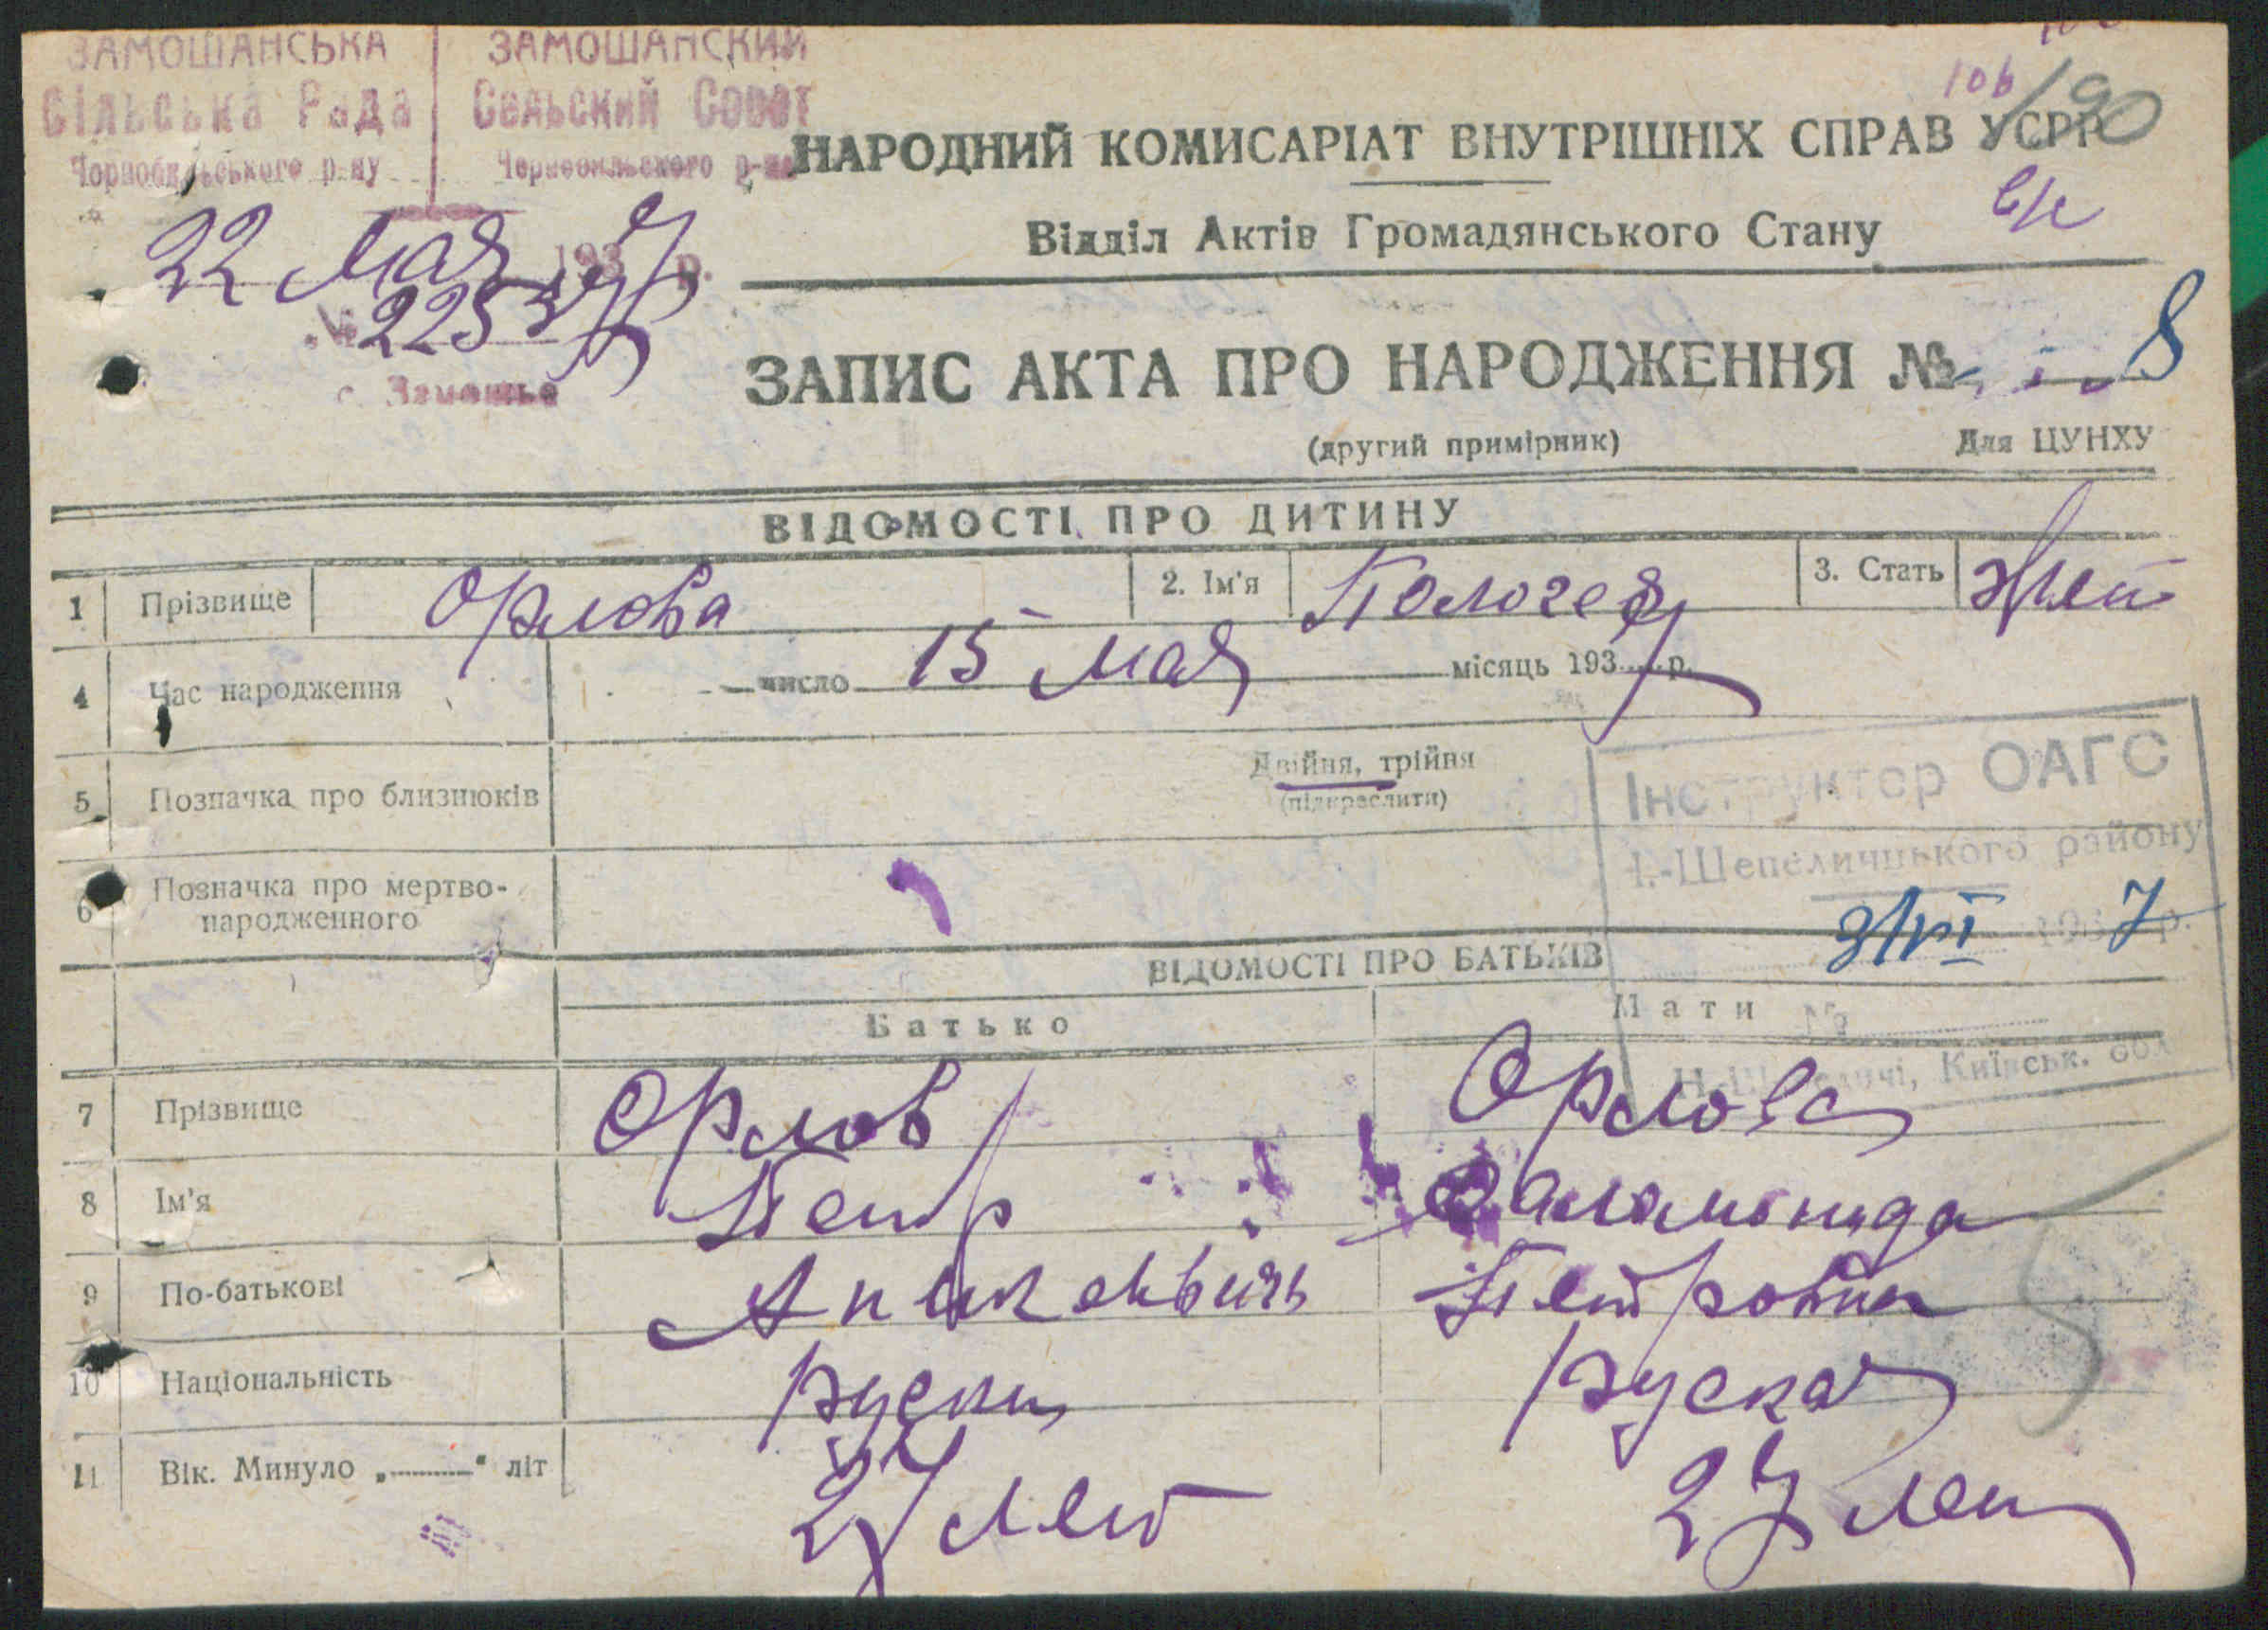 ЗАМОШАНСЬКА ЗАМОШАНСКИЙ
Сільська Рада Сельский Совет
Чорнобильського р-ну Чернобыльского р-на
106 190
НАРОДНИЙ КОМИСАРІАТ ВНУТРІШНІХ СПРАВ УСРР
Відділ Актів Громадянського Стану
22 мая 1937 р.
№ 225
с. Замошье
ЗАПИС АКТА ПРО НАРОДЖЕННЯ № 8
(другий примірник) Для ЦУНХУ
ВІДОМОСТІ ПРО ДИТИНУ
1 Прізвище Орлова 2. Ім'я Пологея 3. Стать жен
4 Час народження число 15 мая місяць 1937 р.
5 Позначка про близнюків Двійня, трійня
(підкреслити)
Інструктор ОАГС
Н.-Шепеличцького району
6 Позначка про мертво-
народженного
3/VI 1937 р.
ВІДОМОСТІ ПРО БАТЬКІВ
Батько Мати
№
Н.-Шепеличі, Київськ. обл
7 Прізвище Орлов Орлова
8 Ім'я Петр Саламонида
9 По-батькові Аникеевичь Петровна
10 Національність руский руская
11 Вік. Минуло „ “ літ 27 лет 27 лет